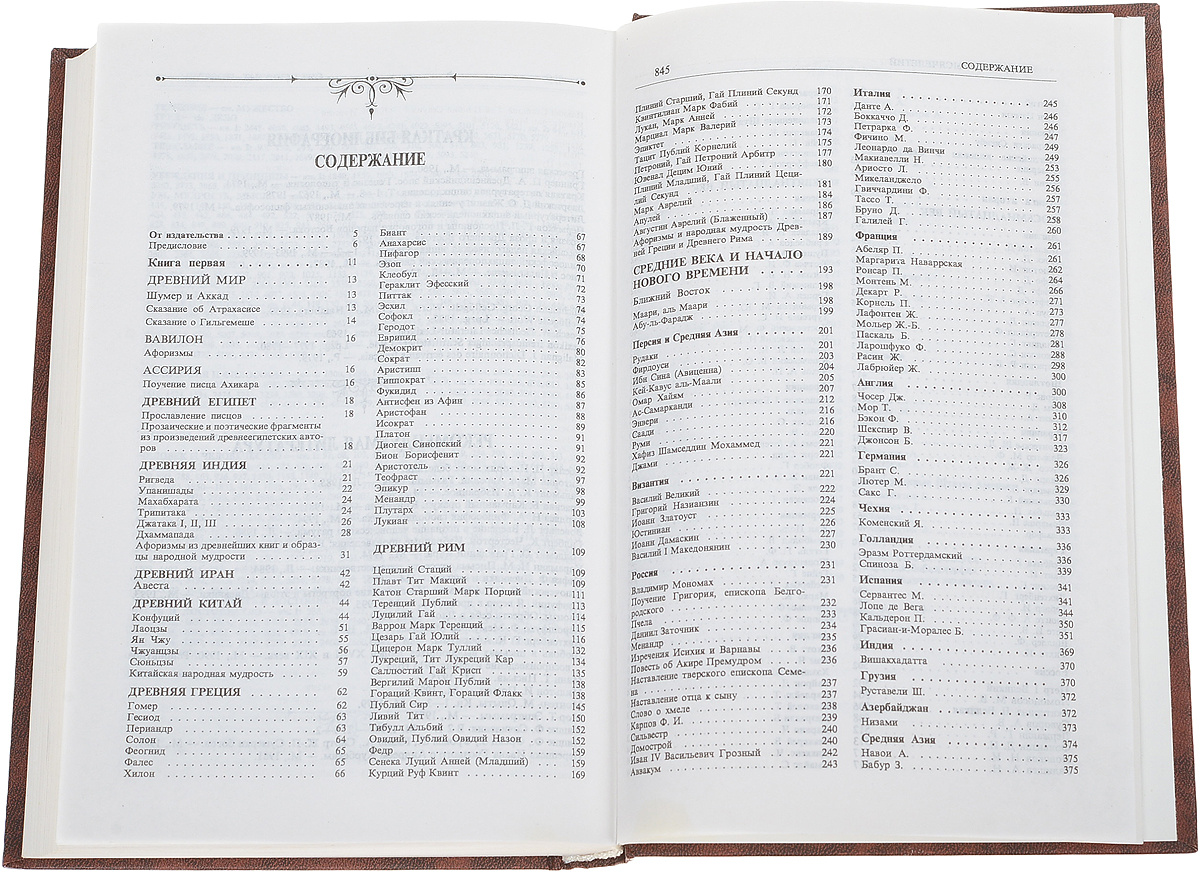 СОДЕРЖАНИЕ
От издательства 5
Предисловие 6
Книга первая 11
ДРЕВНИЙ МИР 13
Шумер и Аккад 13
Сказание об Атрахасисе 13
Сказание о Гильгемеше 14
ВАВИЛОН 16
Афоризмы
АССИРИЯ 16
Поучение писца Ахикара 16
ДРЕВНИЙ ЕГИПЕТ 18
Прославление писцов 18
Прозаические и поэтические фрагменты
из произведений древнеегипетских авто-
ров 18
ДРЕВНЯЯ ИНДИЯ 21
Ригведа 21
Упанишады 22
Махабхарата 24
Трипитака 24
Джатака I, II, III 26
Дхаммапада 28
Афоризмы из древнейших книг и образ-
цы народной мудрости 31
ДРЕВНИЙ ИРАН 42
Авеста 42
ДРЕВНИЙ КИТАЙ 44
Конфуций 44
Лаоцзы 51
Ян Чжу 55
Чжуанцзы 56
Сюньцзы 57
Китайская народная мудрость 59
ДРЕВНЯЯ ГРЕЦИЯ 62
Гомер 62
Гесиод 63
Периандр 63
Солон 64
Феогнид 65
Фалес 65
Хилон 66
Биант 67
Анахарсис 67
Пифагор 68
Эзоп 70
Клеобул 71
Гераклит Эфесский 72
Питтак 73
Эсхил 74
Софокл 74
Геродот 75
Еврипид 76
Демокрит 80
Сократ 82
Аристипп 83
Гиппократ 85
Фукидид 86
Антисфен из Афин 87
Аристофан 88
Исократ 89
Платон 91
Диоген Синопский 91
Бион Борисфенит 92
Аристотель 92
Теофраст 97
Эпикур 98
Менандр 99
Плутарх 103
Лукиан 108
ДРЕВНИЙ РИМ 109
Цецилий Стаций 109
Плавт Тит Макций 109
Катон Старший Марк Порций 111
Теренций Публий 113
Луцилий Гай 114
Варрон Марк Теренций 115
Цезарь Гай Юлий 116
Цицерон Марк Туллий 132
Лукреций, Тит Лукреций Кар 134
Саллюстий Гай Крисп 135
Вергилий Марон Публий 138
Гораций Квинт, Гораций Флакк 138
Публий Сир 145
Ливий Тит 150
Тибулл Альбий 152
Овидий, Публий Овидий Назон 152
Федр 159
Сенека Луций Анней (Младший) 159
Курций Руф Квинт 169
845 СОДЕРЖАНИЕ
Плиний Старший, Гай Плиний Секунд 170
Квинтилиан Марк Фабий 171
Лукан, Марк Анней 172
Марциал Марк Валерий 173
Эпиктет 174
Тацит Публий Корнелий 175
Петроний, Гай Петроний Арбитр 177
Ювенал Децим Юний 180
Плиний Младший, Гай Плиний Цеци-
лий Секунд 181
Марк Аврелий 184
Апулей 186
Августин Аврелий (Блаженный) 187
Афоризмы и народная мудрость Древ-
ней Греции и Древнего Рима 189
СРЕДНИЕ ВЕКА И НАЧАЛО
НОВОГО ВРЕМЕНИ 193
Ближний Восток 198
Маари, аль Маари 198
Абу-ль-Фарадж 199
Персия и Средняя Азия 201
Рудаки 201
Фирдоуси 203
Ибн Сина (Авиценна) 204
Кей-Кавус аль-Маали 205
Омар Хайям 207
Ас-Самарканди 212
Энвери 216
Саади 216
Руми 220
Хафиз Шамседдин Мохаммед 221
Джами 221
Византия 221
Василий Великий 222
Григорий Назианзин 224
Иоанн Златоуст 225
Юстиниан 226
Иоанн Дамаскин 227
Василий I Македонянин 230
Россия 231
Владимир Мономах 231
Поучение Григория, епископа Белго-
родского 232
Пчела 233
Даниил Заточник 234
Менандр 235
Изречения Исихия и Варнавы 236
Повесть об Акире Премудром 236
Наставление тверского епископа Семе-
на 237
Наставление отца к сыну 237
Слово о хмеле 238
Карпов Ф. И. 239
Сильвестр 240
Домострой 240
Иван IV Васильевич Грозный 242
Аввакум 243
Италия 245
Данте А. 246
Боккаччо Д. 246
Петрарка Ф. 247
Фичино М. 249
Леонардо да Винчи 249
Макиавелли Н. 253
Ариосто Л. 255
Микеланджело 256
Гвиччардини Ф. 257
Тассо Т. 257
Бруно Д. 258
Галилей Г. 260
Франция 261
Абеляр П. 261
Маргарита Наваррская 262
Ронсар П. 264
Монтень М. 266
Декарт Р. 271
Корнель П. 273
Лафонтен Ж. 277
Мольер Ж.-Б. 278
Паскаль Б. 281
Ларошфуко Ф. 288
Расин Ж. 298
Лабрюйер Ж. 300
Англия 300
Чосер Дж. 308
Мор Т. 310
Бэкон Ф. 312
Шекспир В. 317
Джонсон Б. 323
Германия 326
Брант С. 326
Лютер М. 329
Сакс Г. 330
Чехия 333
Коменский Я. 333
Голландия 336
Эразм Роттердамский 336
Спиноза Б. 339
Испания 341
Сервантес М. 341
Лопе де Вега 344
Кальдерон П. 350
Грасиан-и-Моралес Б. 351
Индия 369
Вишакхадатта 370
Грузия 370
Руставели Ш. 372
Азербайджан 372
Низами 373
Средняя Азия 374
Навои А. 375
Бабур З. 375